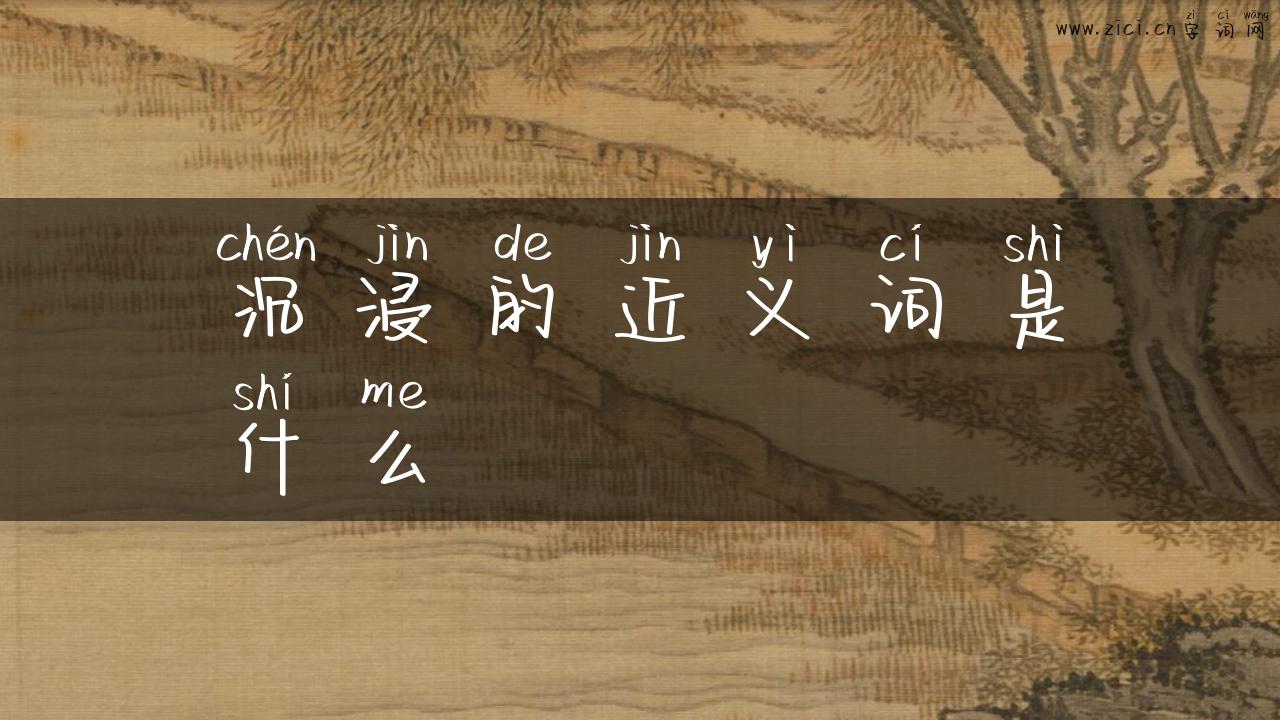 zì cí wǎng
www.zici.cn字词网
chén jìn de jìn yì cí shì
沉浸的近义词是
shí me
什么